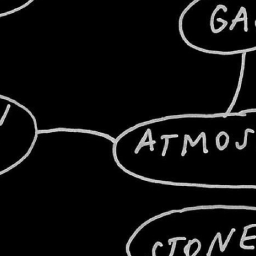 GA
ATMOS
STONE